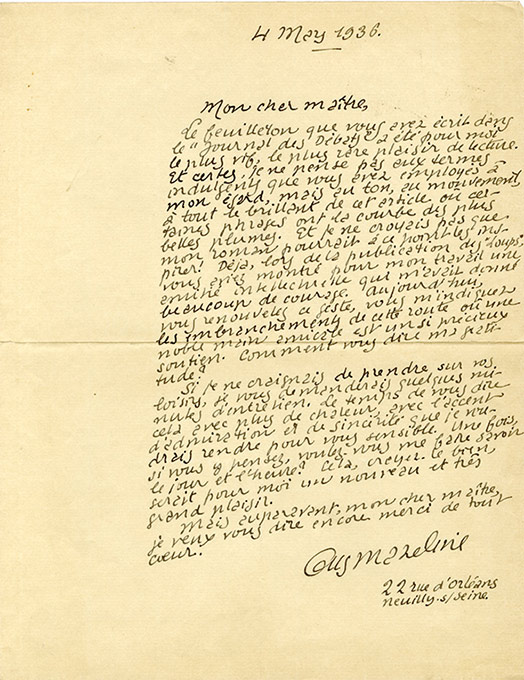 4 May 1936.
Mon cher maître
Le feuilleton que vous avez écrit dans
le "Journal des Débats" a été pour moi
le plus vif, le plus rare plaisir de lecture.
Et certes, je ne pense pas aux termes
indulgents que vous avez employés à
mon égard, mais au ton, au mouvement,
à tout le brillant de cet article où cer-
taines phrases ont la courbe des plus
belles plumes. Et je ne croyais pas que
mon roman pourrait à ce point les ins-
pirer! Déjà, lors de la publication des "Loups"
vous aviez montré pour mon travail une
amitié intellectuelle qui m'avait donné
beaucoup de courage. Aujourd'hui,
vous renouvelez ce geste, vous m'indiquez
les embranchements de cette route où une
noble main amicale est un si précieux
soutien. Comment vous dire ma grati-
tude?
Si je ne craignais de prendre sur vos
loisirs, je vous demanderais quelques mi-
nutes d'entretien. Le temps de vous dire
cela avec plus de chaleur, avec l'accent
d'admiration et de sincérité que je vou-
drais rendre pour vous sensible. Une fois,
si vous y pensez, voulez-vous me faire savoir
le jour et l'heure? Cela, croyez-le bien,
serait pour moi un nouveau et très
grand plaisir.
Mais auparavant, mon cher maître,
je veux vous dire encore merci de tout
cœur.
Guy Mazeline
22 rue d'Orléans
Neuilly-s/Seine.